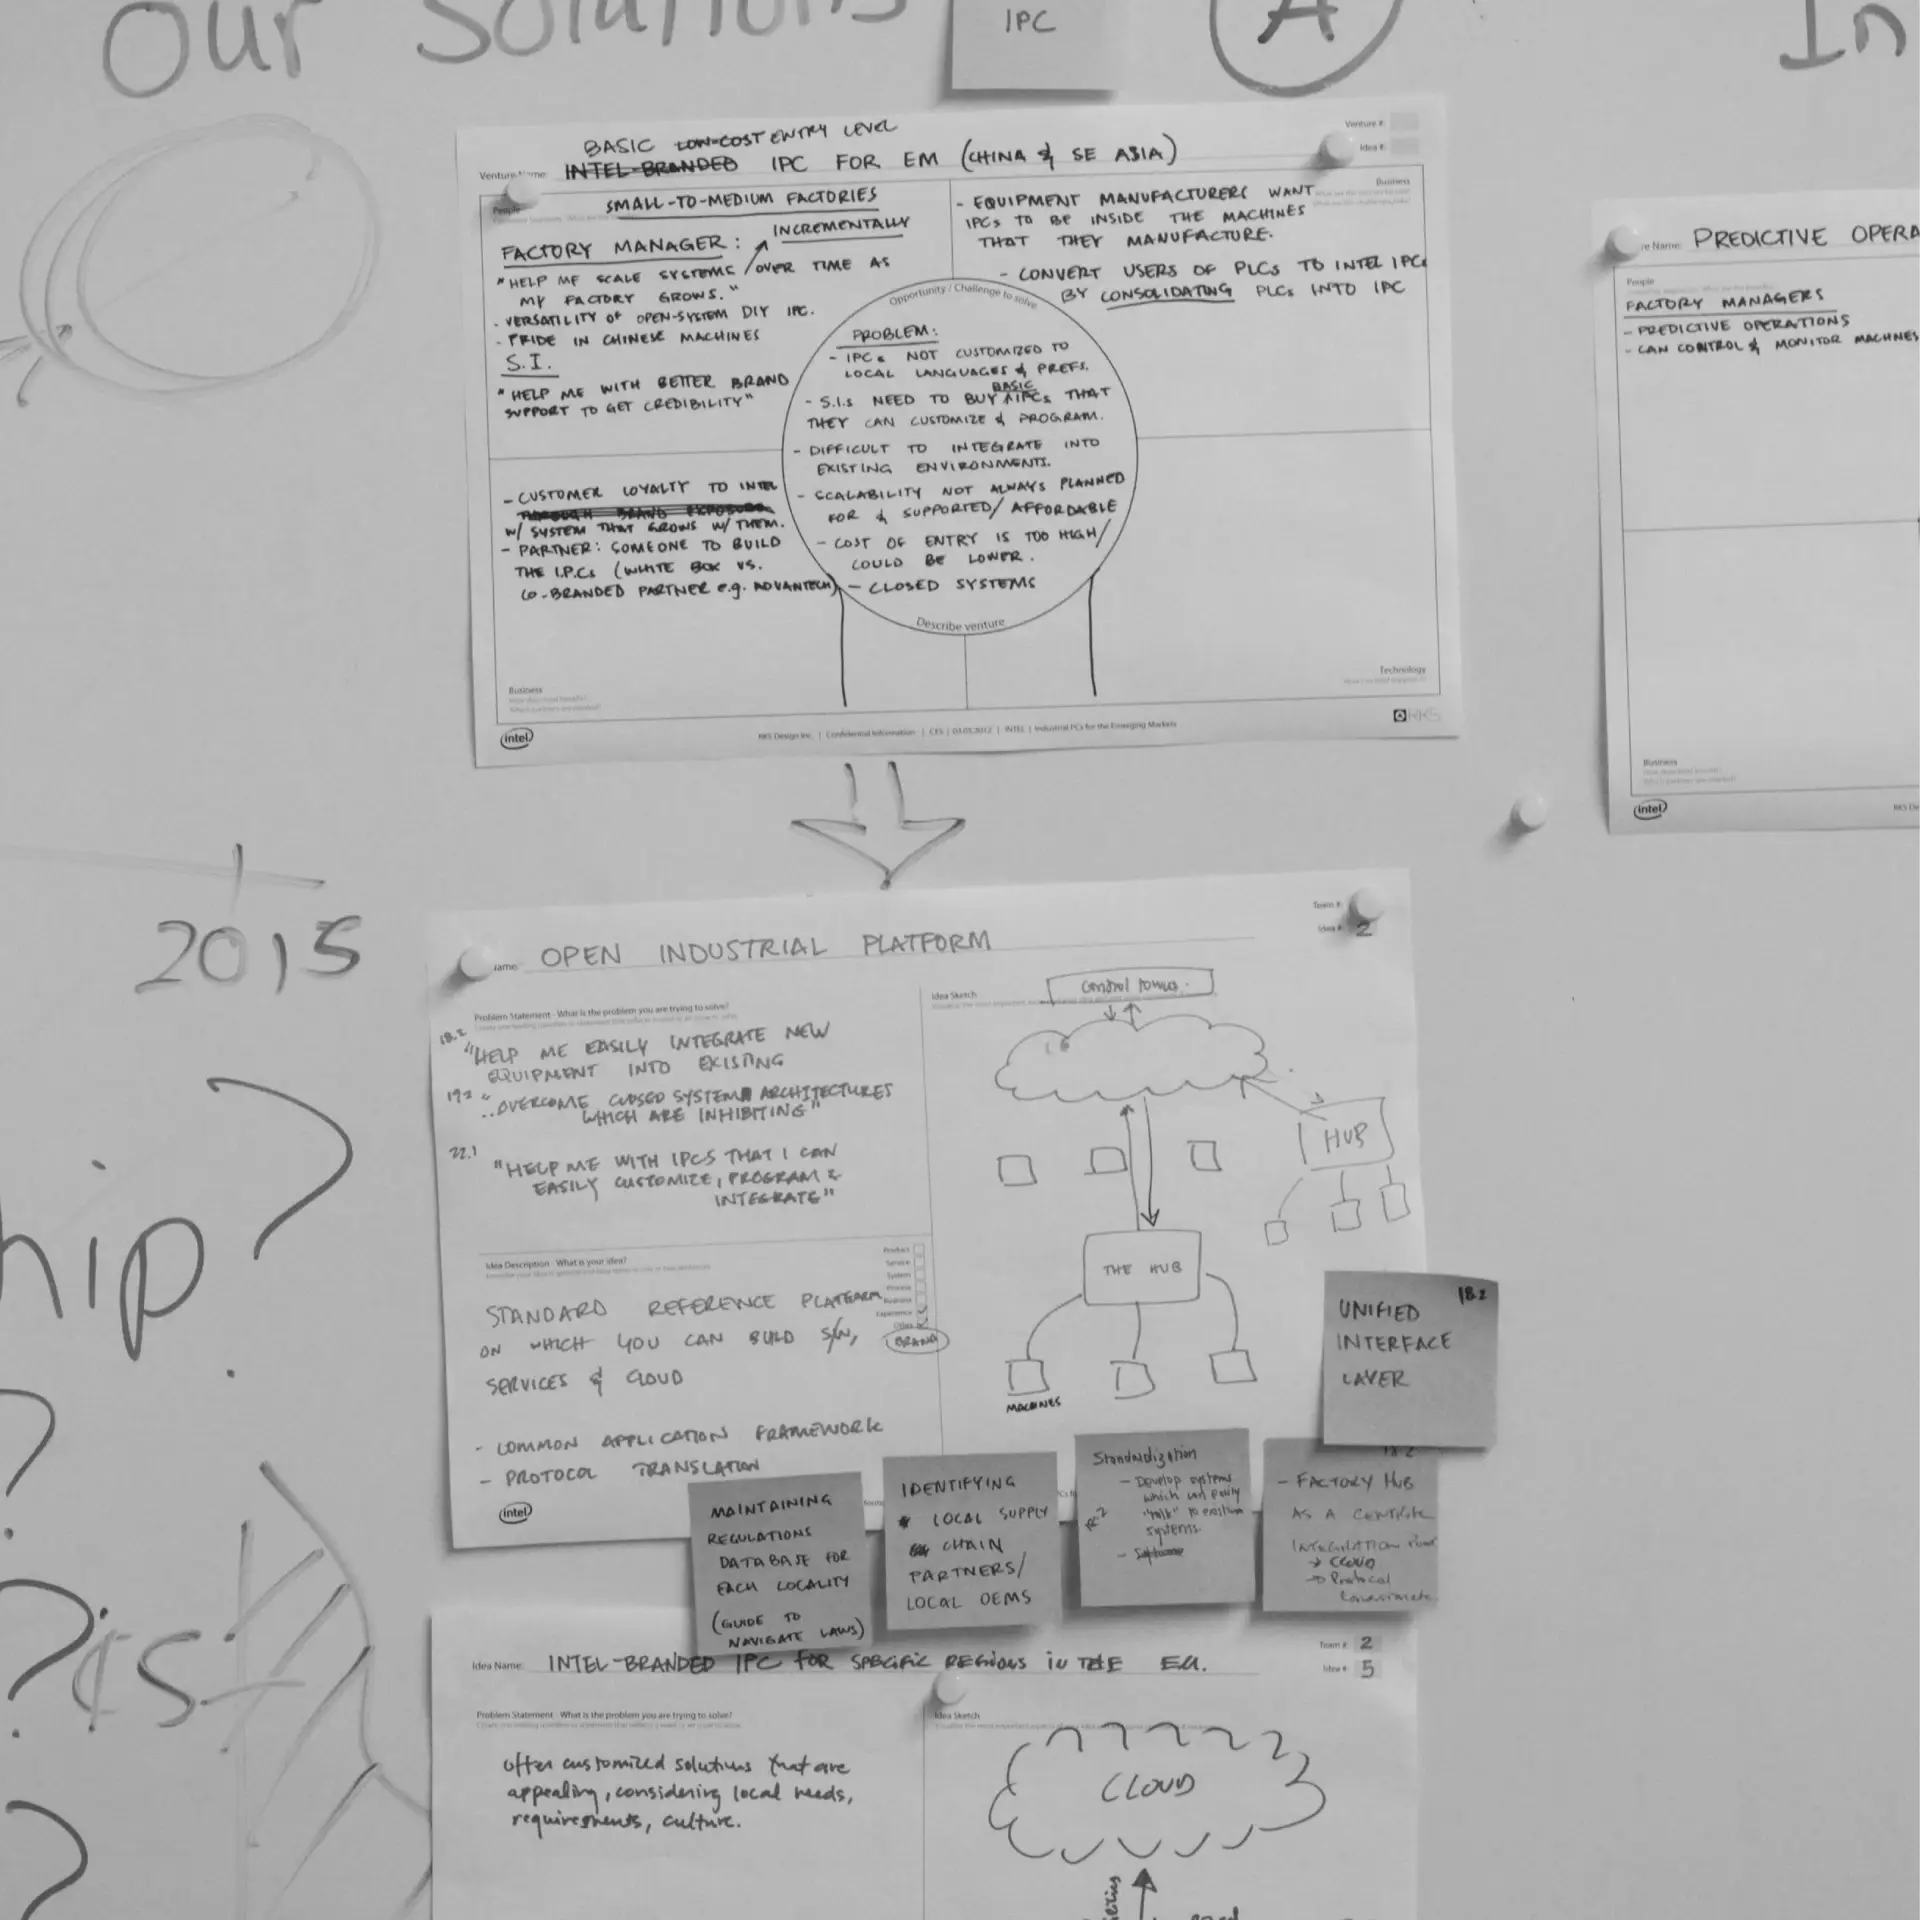 Our Solutions
IPC
A
In
BASIC LOW-COST ENTRY LEVEL
Venture Name: INTEL-BRANDED IPC FOR EM (CHINA & SE ASIA)
Venture #:
Idea #:
People
SMALL-TO-MEDIUM FACTORIES
INCREMENTALLY
FACTORY MANAGER:
"HELP ME SCALE SYSTEMS OVER TIME AS
MY FACTORY GROWS."
- VERSATILITY OF OPEN-SYSTEM DIY IPC.
- PRIDE IN CHINESE MACHINES
S.I.
"HELP ME WITH BETTER BRAND
SUPPORT TO GET CREDIBILITY"
Business
- EQUIPMENT MANUFACTURERS WANT
IPCs TO BE INSIDE THE MACHINES
THAT THEY MANUFACTURE.
- CONVERT USERS OF PLCs TO INTEL IPCs
BY CONSOLIDATING PLCs INTO IPC
Opportunity / Challenge to solve
PROBLEM:
- IPCs NOT CUSTOMIZED TO
LOCAL LANGUAGES & PREFS.
BASIC
- S.I.s NEED TO BUY ^ IPCs THAT
THEY CAN CUSTOMIZE & PROGRAM.
- DIFFICULT TO INTEGRATE INTO
EXISTING ENVIRONMENTS.
- SCALABILITY NOT ALWAYS PLANNED
FOR & SUPPORTED/AFFORDABLE
- COST OF ENTRY IS TOO HIGH/
COULD BE LOWER.
- CLOSED SYSTEMS
Describe venture
- CUSTOMER LOYALTY TO INTEL
THROUGH BRAND EXPOSURE
W/ SYSTEM THAT GROWS W/ THEM.
- PARTNER: SOMEONE TO BUILD
THE I.P.Cs (WHITE BOX VS.
CO-BRANDED PARTNER e.g. ADVANTECH)
Business
Technology
intel
RKS Design Inc. | Confidential Information | CES | 03.05.2012 | INTEL | Industrial PCs for the Emerging Markets
RKS
Name: PREDICTIVE OPERA
People
FACTORY MANAGERS
- PREDICTIVE OPERATIONS
- CAN CONTROL & MONITOR MACHINES
Business
intel
2015
hip?
?
?
?
Team #:
Idea #: 2
Name: OPEN INDUSTRIAL PLATFORM
Problem Statement - What is the problem you are trying to solve?
18.2 "HELP ME EASILY INTEGRATE NEW
EQUIPMENT INTO EXISTING
19.2 "..OVERCOME CLOSED SYSTEM ARCHITECTURES
WHICH ARE INHIBITING"
22.1 "HELP ME WITH IPCS THAT I CAN
EASILY CUSTOMIZE, PROGRAM &
INTEGRATE"
Idea Sketch
Control tower
HUB
THE HUB
MACHINES
Idea Description - What is your idea?
Product
Service
System
Process
Business
Experience
Other
BRAND
STANDARD REFERENCE PLATFORM
ON WHICH YOU CAN BUILD S/W,
SERVICES & CLOUD
- COMMON APPLICATION FRAMEWORK
- PROTOCOL TRANSLATION
intel
18.2
UNIFIED
INTERFACE
LAYER
MAINTAINING
REGULATIONS
DATABASE FOR
EACH LOCALITY
(GUIDE TO
NAVIGATE LAWS)
IDENTIFYING
* LOCAL SUPPLY
CHAIN
PARTNERS/
LOCAL OEMS
Standardization
- Develop systems
which can easily
"talk" to existing
systems.
- Software
18.2
18.2
- FACTORY HUB
AS A
INTEGRATION
→ CLOUD
→ Protocol
Team #: 2
Idea #: 5
Idea Name: INTEL-BRANDED IPC FOR SPECIFIC REGIONS IN THE EM.
Problem Statement - What is the problem you are trying to solve?
offer customized solutions that are
appealing, considering local needs,
requirements, culture.
Idea Sketch
CLOUD